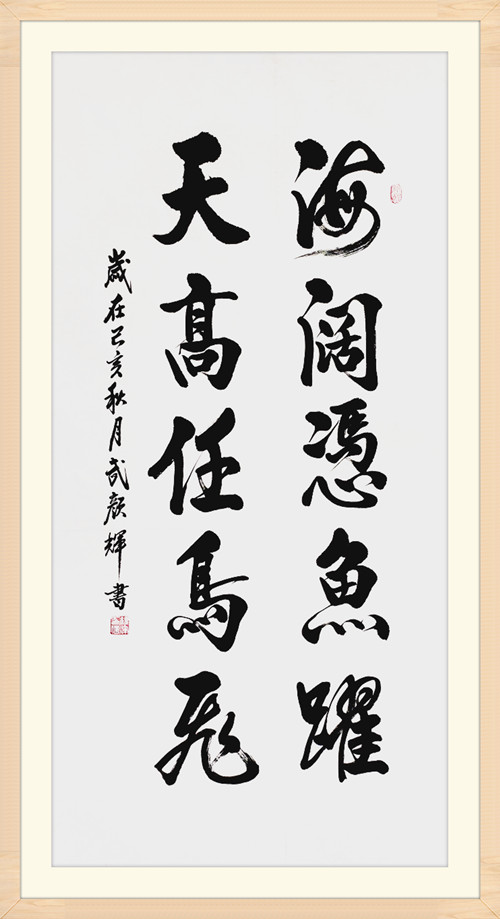 海闊憑魚躍
天高任鳥飛
歲在己亥秋月武顏輝書